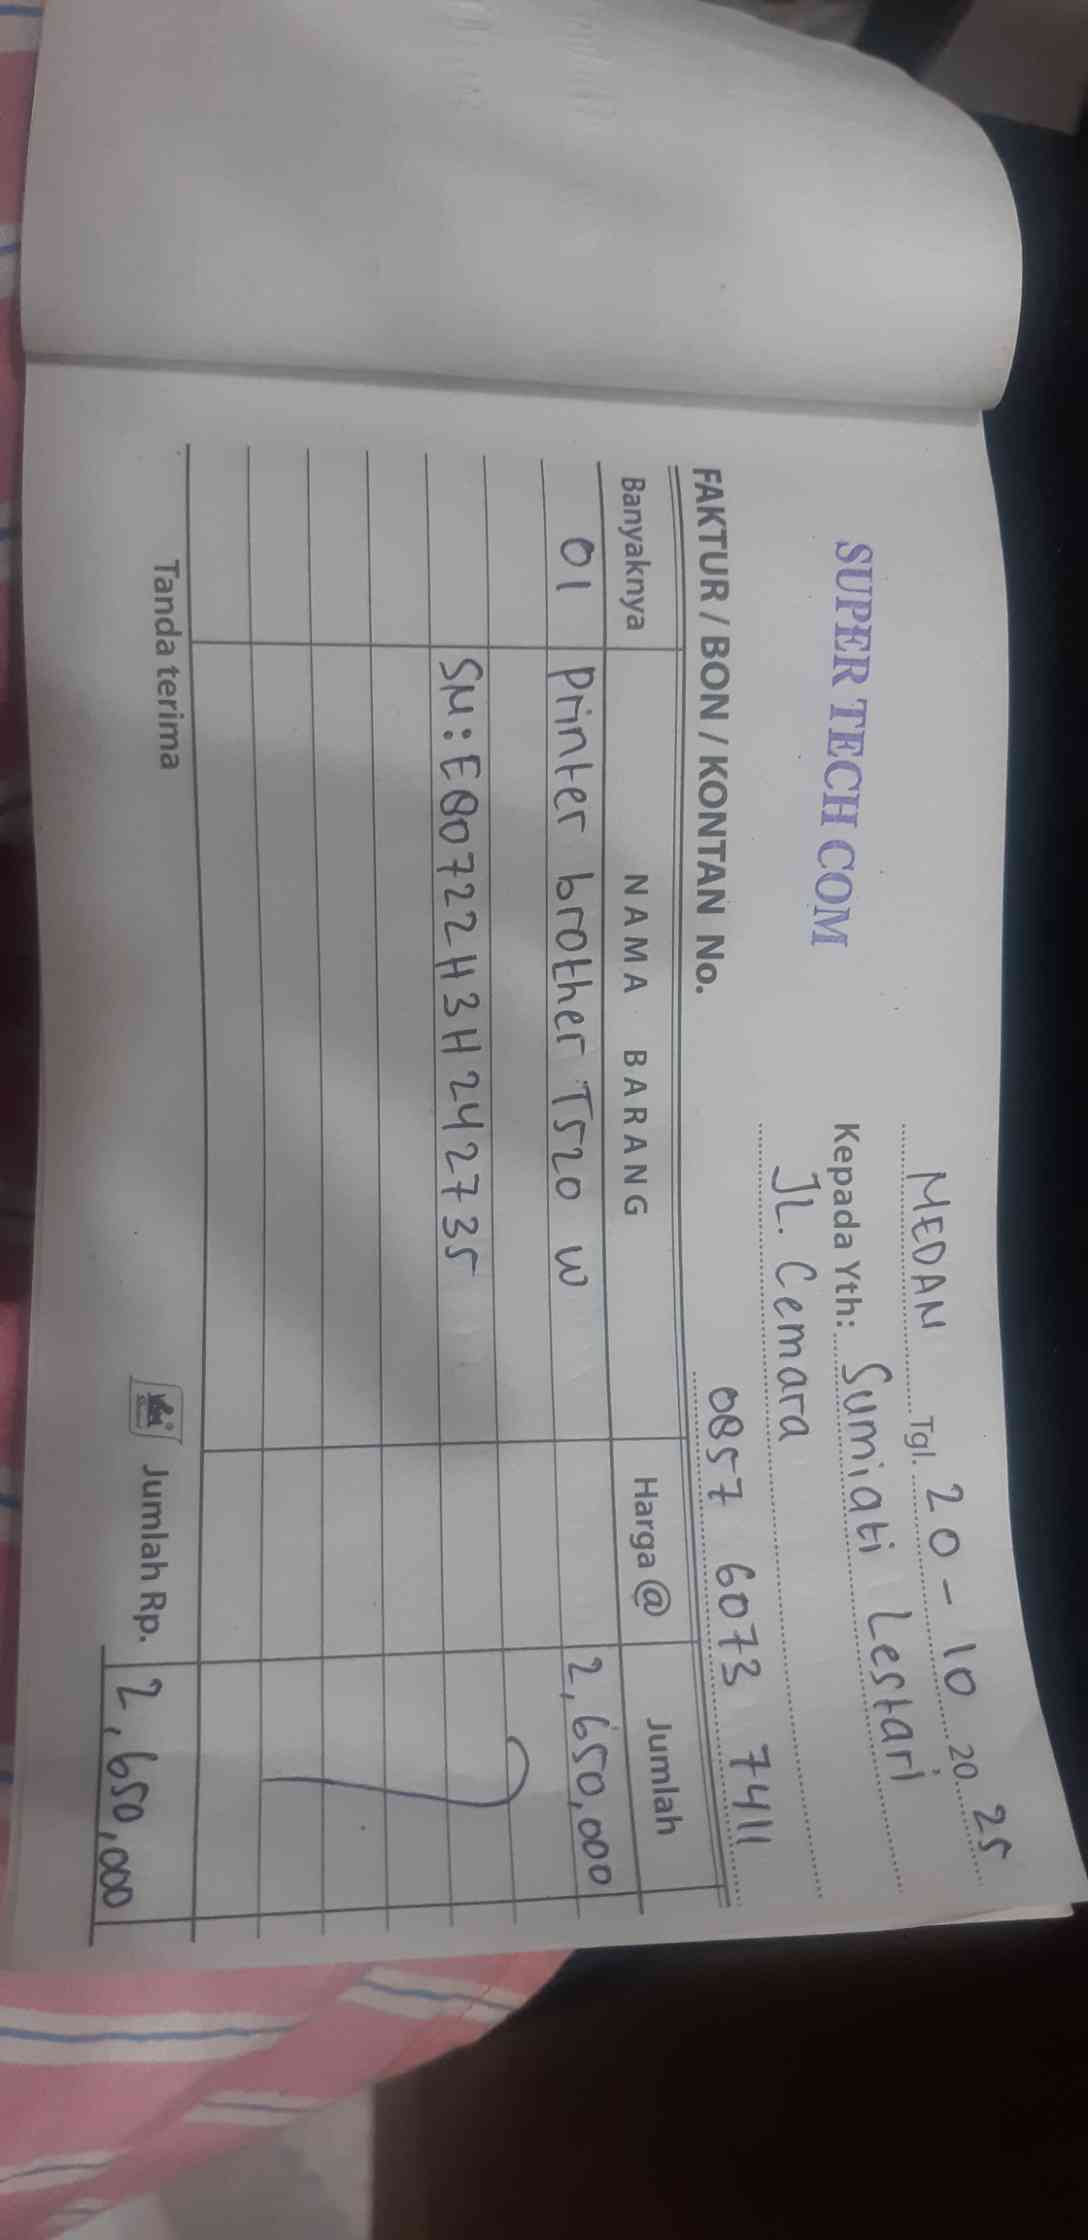 MEDAN Tgl. 20-10 20 25
SUPER TECH COM
Kepada Yth: Sumiati Lestari
JL. Cemara
0857 6073 7411
FAKTUR / BON / KONTAN No.
Banyaknya NAMA BARANG Harga @ Jumlah
01 Printer brother T520 W 2,650,000
SN: E80722H3H242735
Tanda terima Jumlah Rp. 2,650,000